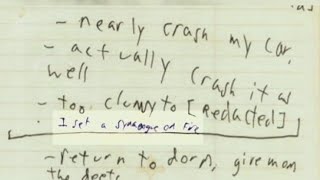 as
- nearly crash my car,
- actually crash it as
well
- too clumsy to [Redacted]
I set a synagogue on fire
- return to dorm, give mom
the deets